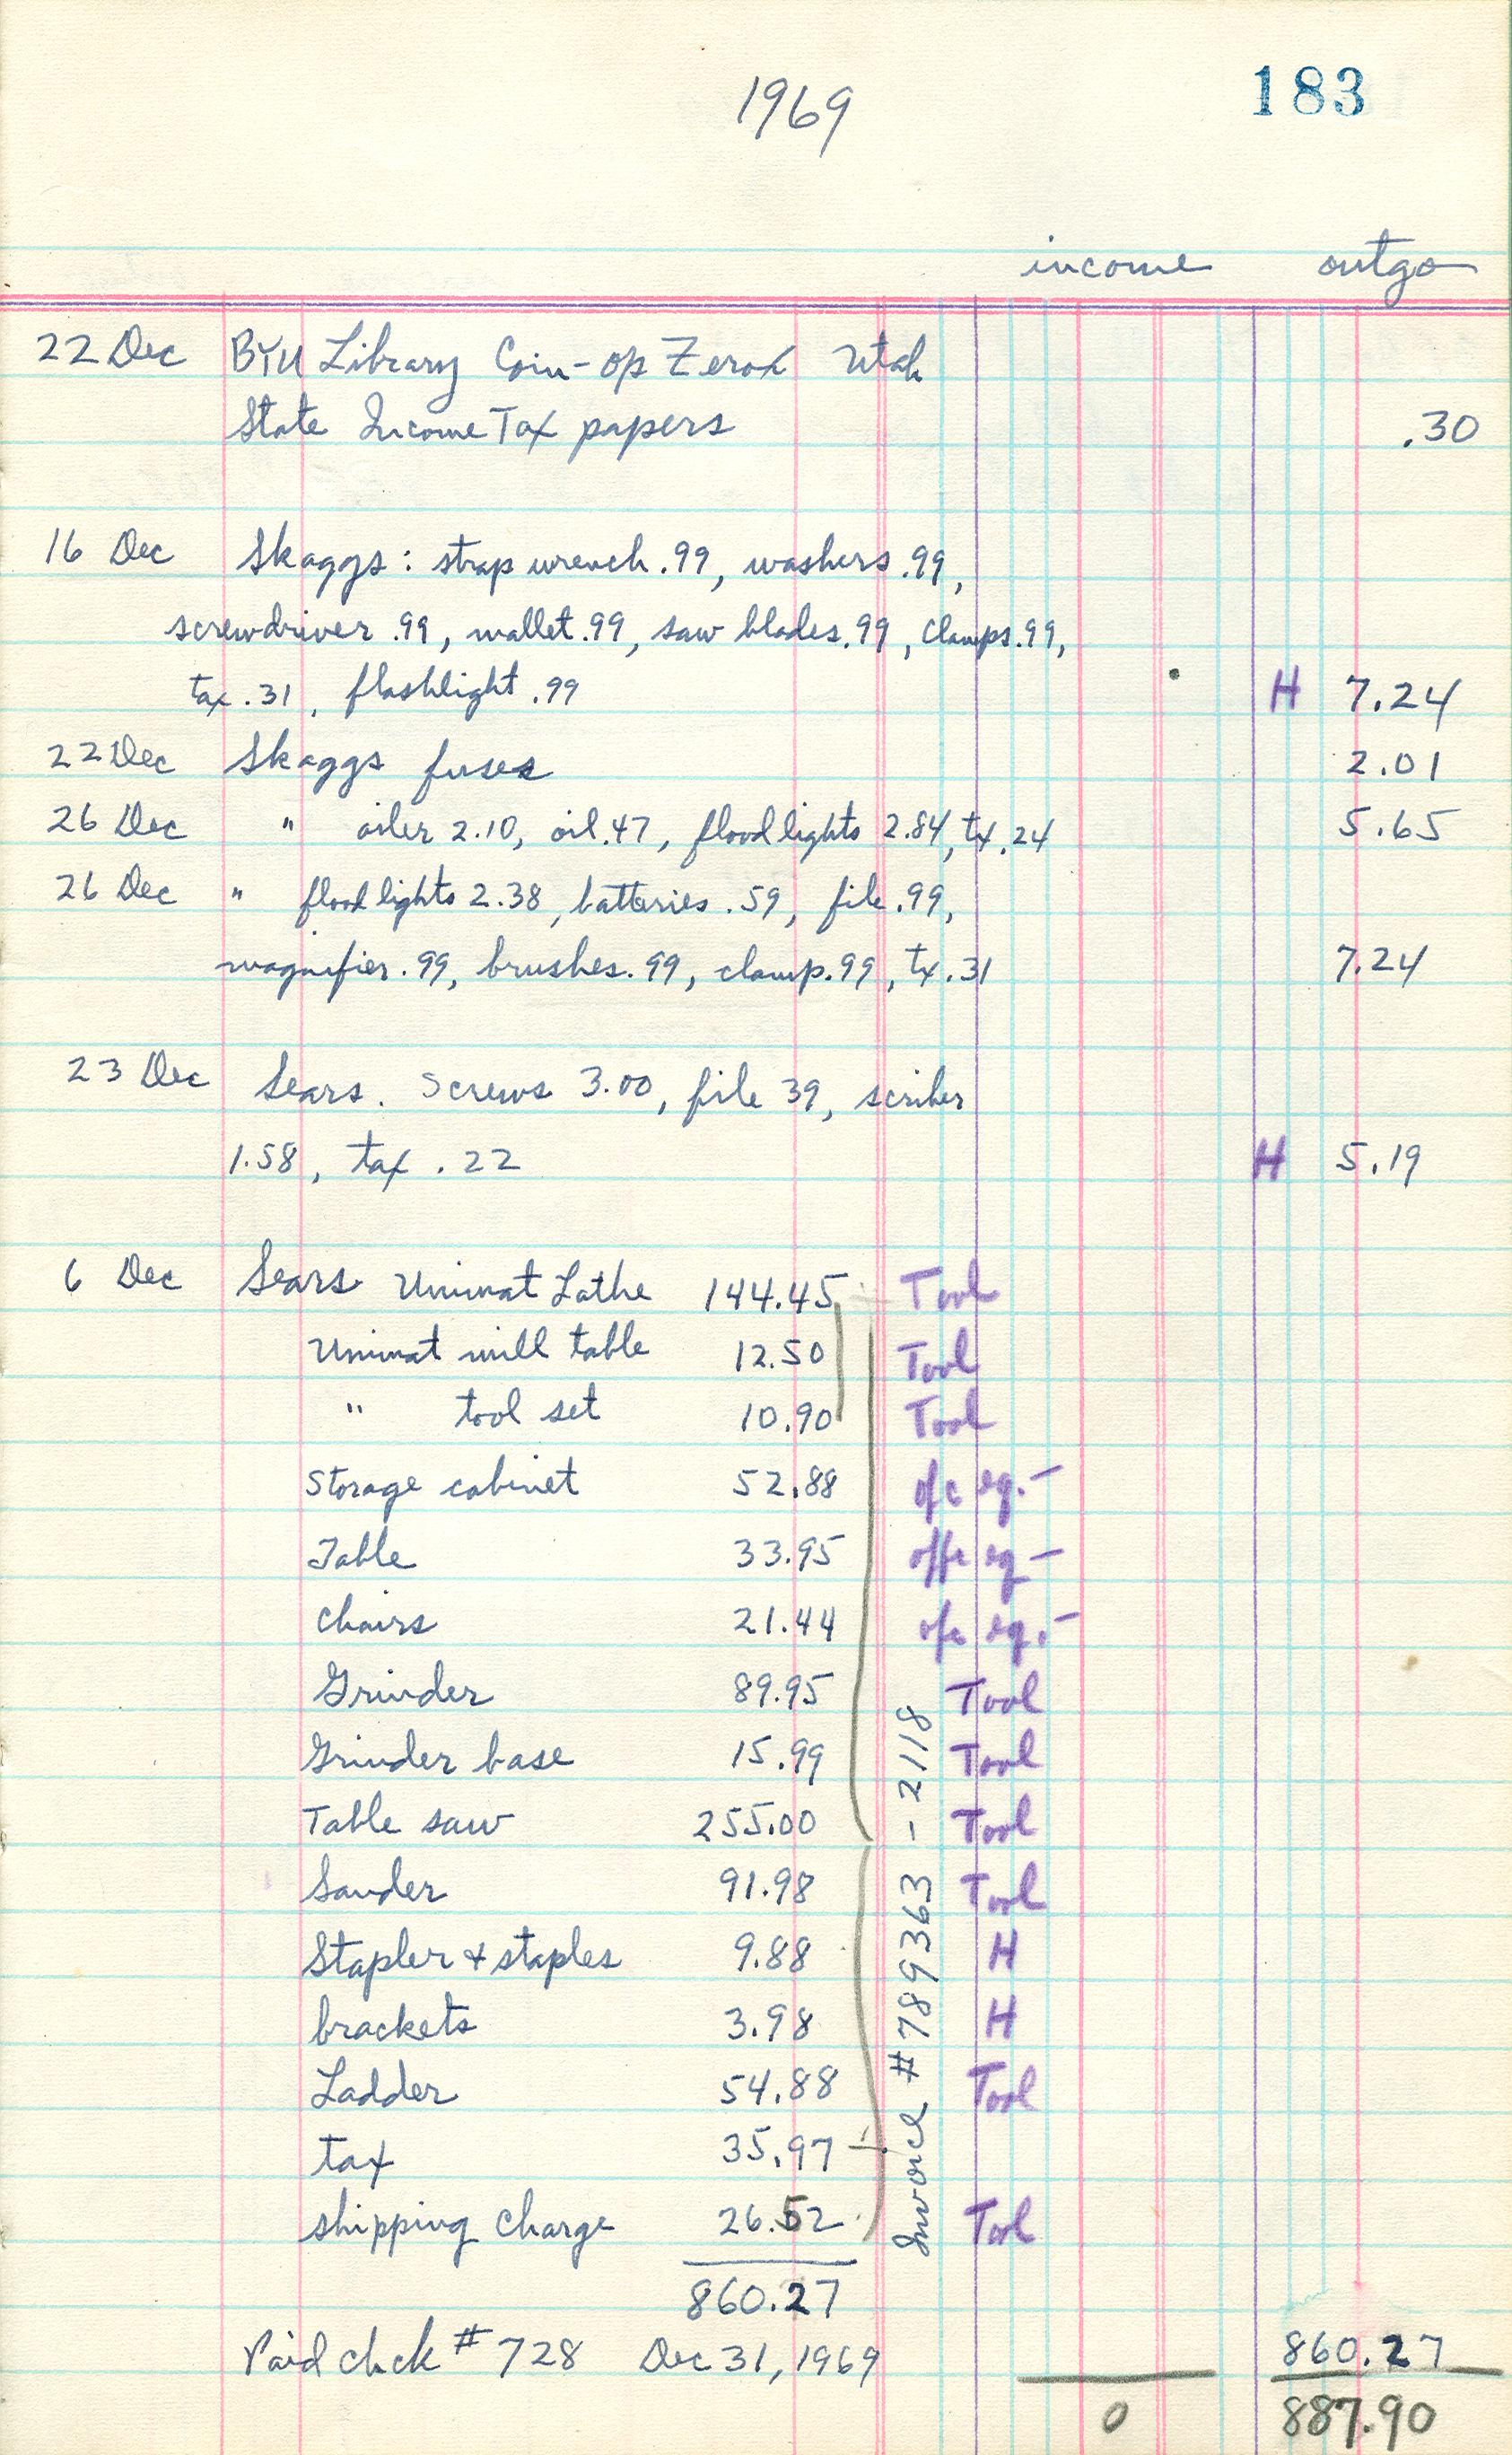 1969
183
income outgo
22 Dec BYU Library Coin-op Zerox Utah
State Income Tax papers .30
16 Dec Skaggs: strap wrench .99, washers .99,
screwdriver .99, mallet .99, saw blades .99, clamps .99,
tax .31, flashlight .99 H 7.24
22 Dec Skaggs fuses 2.01
26 Dec " oiler 2.10, oil .47, floodlights 2.84, tx .24 5.65
26 Dec " floodlights 2.38, batteries .59, file .99,
magnifier .99, brushes .99, clamp .99, tx .31 7.24
23 Dec Sears. Screws 3.00, file 39, scriber
1.58, tax .22 H 5.19
6 Dec Sears Unimat Lathe 144.45 Tool
Unimat mill table 12.50 Tool
" tool set 10.90 Tool
Storage cabinet 52.88 ofc eq. -
Table 33.95 offc eq -
Chairs 21.44 ofc eq. -
Grinder 89.95 Tool
Grinder base 15.99 Tool
Table saw 255.00 Tool
Sander 91.98 Tool
Stapler & staples 9.88 H
brackets 3.98 H
Ladder 54.88 Tool
tax 35.97
shipping charge 26.52 Tool
Invoice # 789363 - 2118
860.27
Paid chck # 728 Dec 31, 1969 860.27
0 887.90